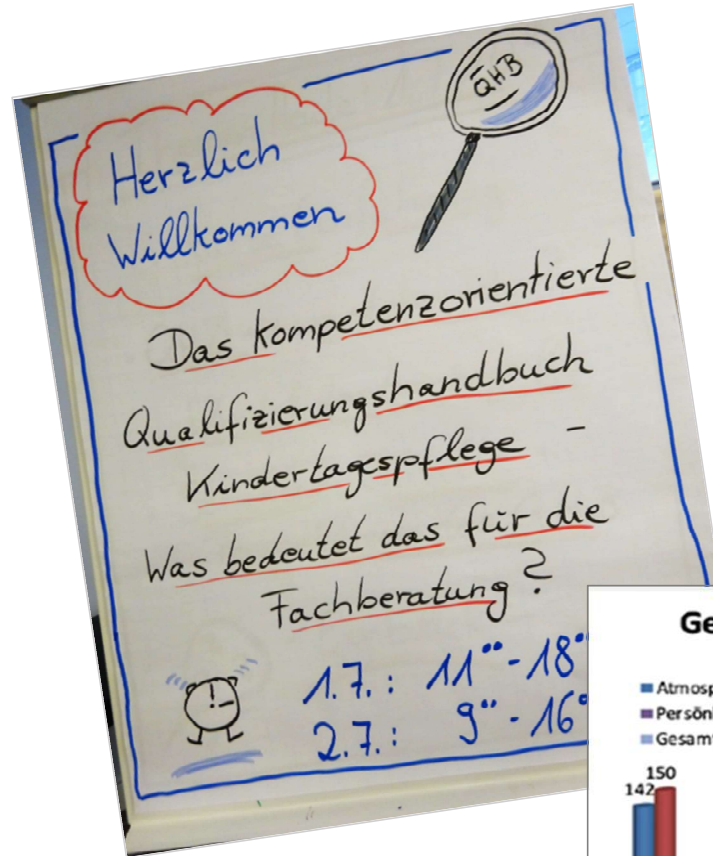 Herzlich
Willkommen
QHB
Das kompetenzorientierte
Qualifizierungshandbuch
Kindertagespflege -
Was bedeutet das für die
Fachberatung?
1.7.: 11°° - 18°
2.7.: 9°° - 16°
142
150